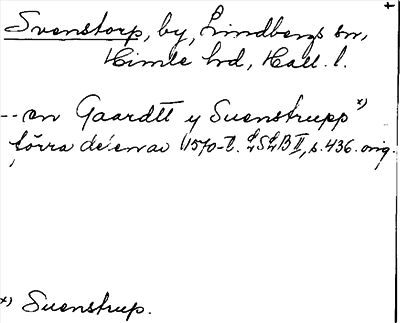 Svenstorp, by, Lindbergs sn,
Himle hd, Hall. l.
-- en Gaardtt y Suenstrupp x)
förra delen av 1570-t. ÆSÆB II, s. 436. orig.
x) Suenstrup.